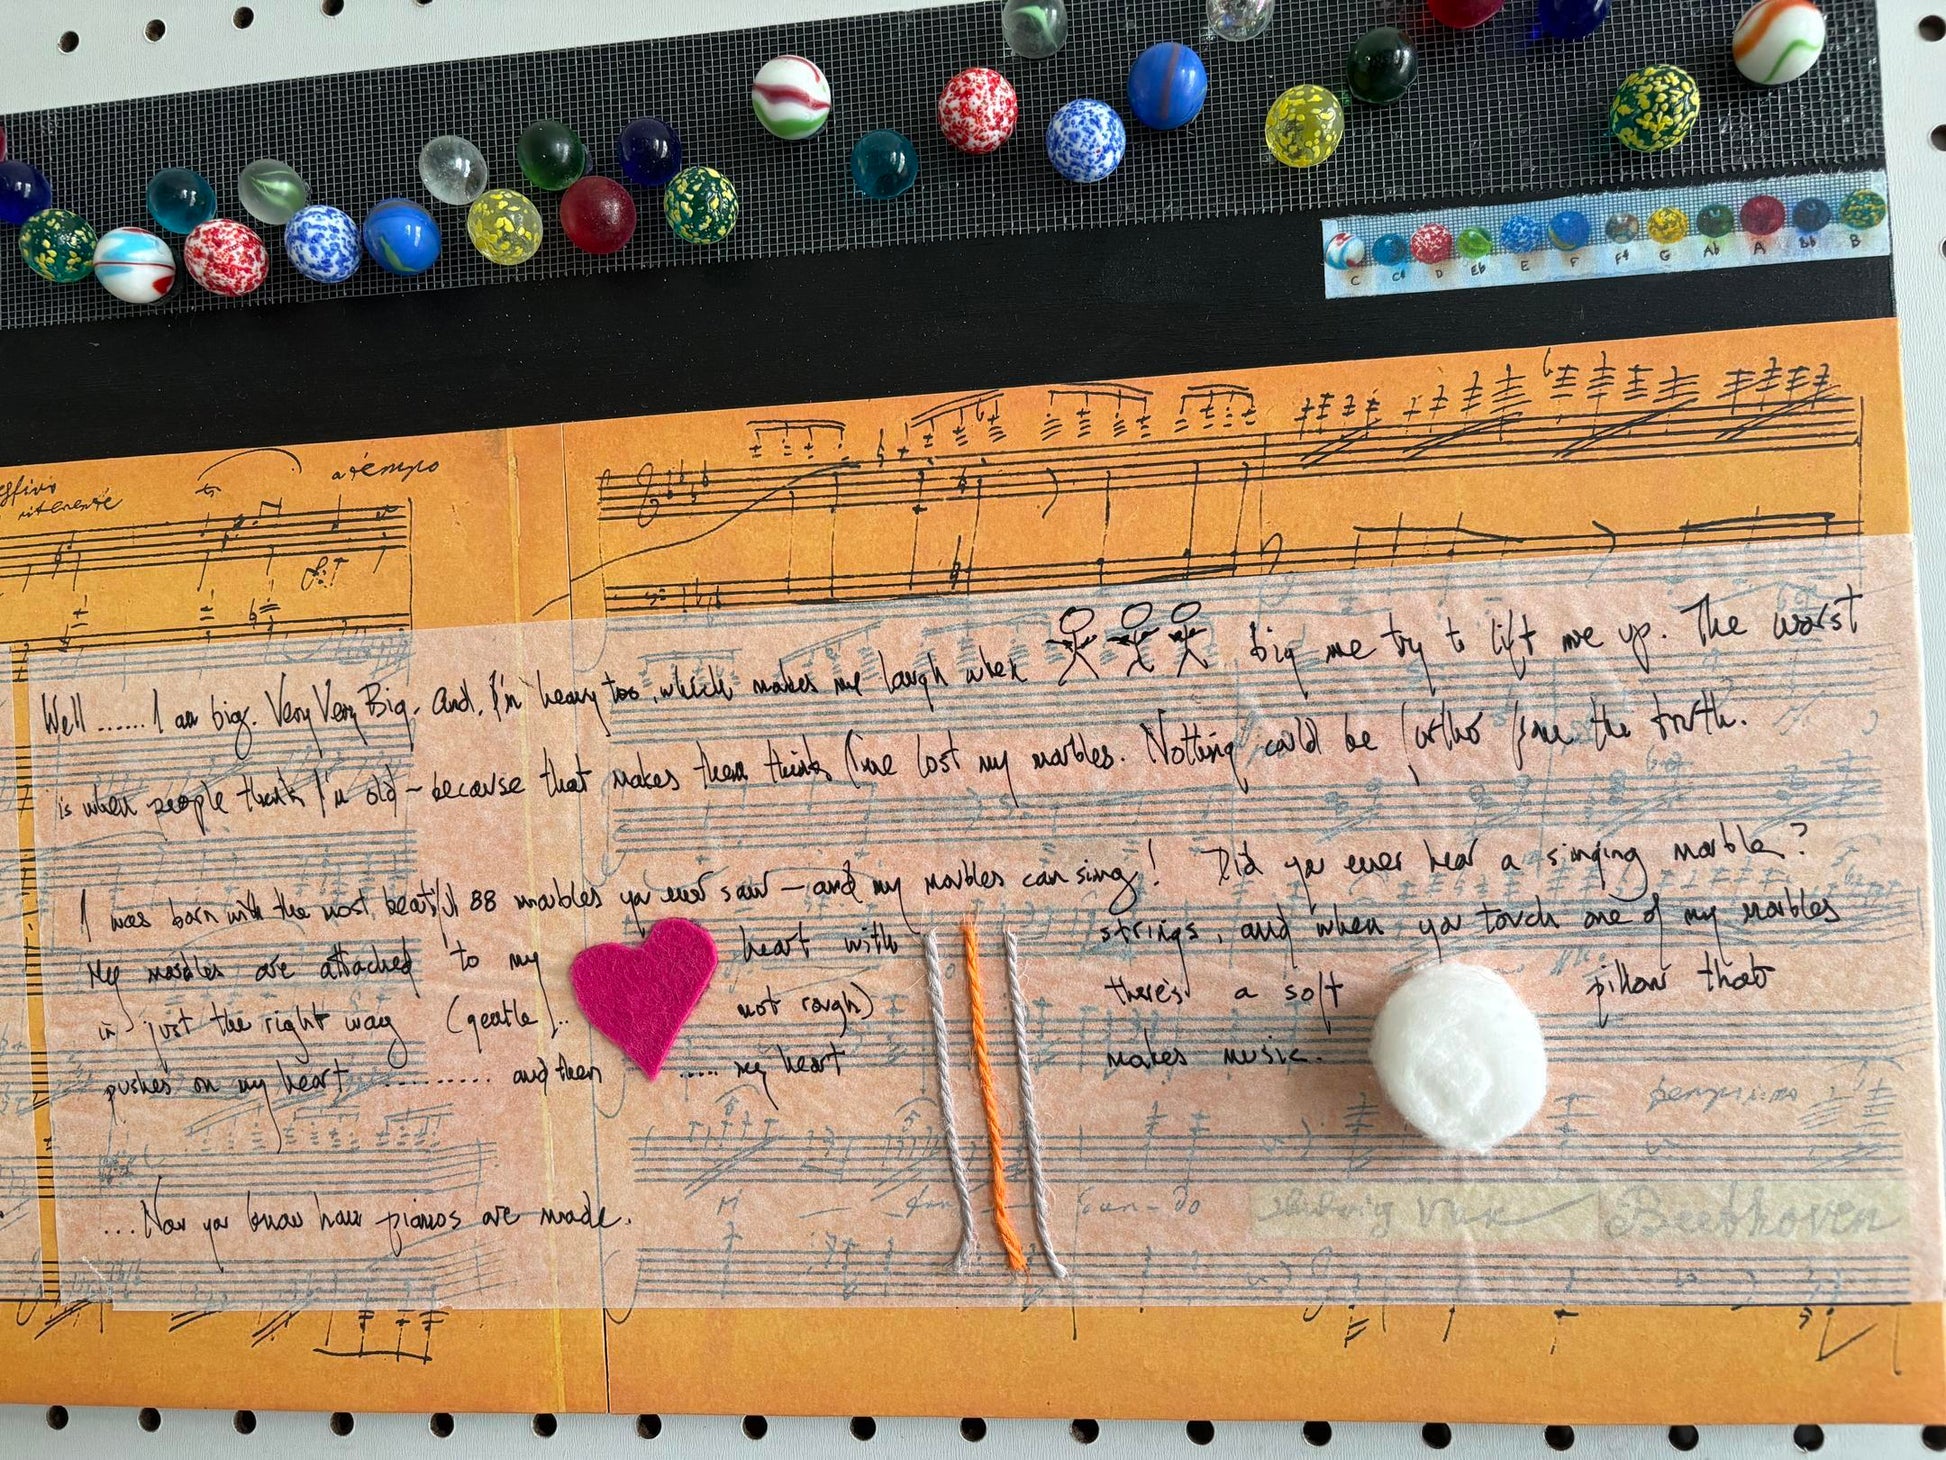 C C# D Eb E F F# G Ab A Bb B
ritenente
a tempo
Well ...... I am big. Very Very Big. And, I'm heavy too, which makes me laugh when big me try to lift me up. The worst
is when people think I'm old - because that makes them think I've lost my marbles. Nothing could be further from the truth.
I was born with the most beautiful 88 marbles you ever saw - and my marbles can sing! Did you ever hear a singing marble?
My marbles are attached to my heart with strings, and when you touch one of my marbles
in just the right way (gentle).. not rough) there's a soft pillow that
pushes on my heart .......... and then ..... my heart makes music.
...Now you know how pianos are made.
Ludwig Van Beethoven